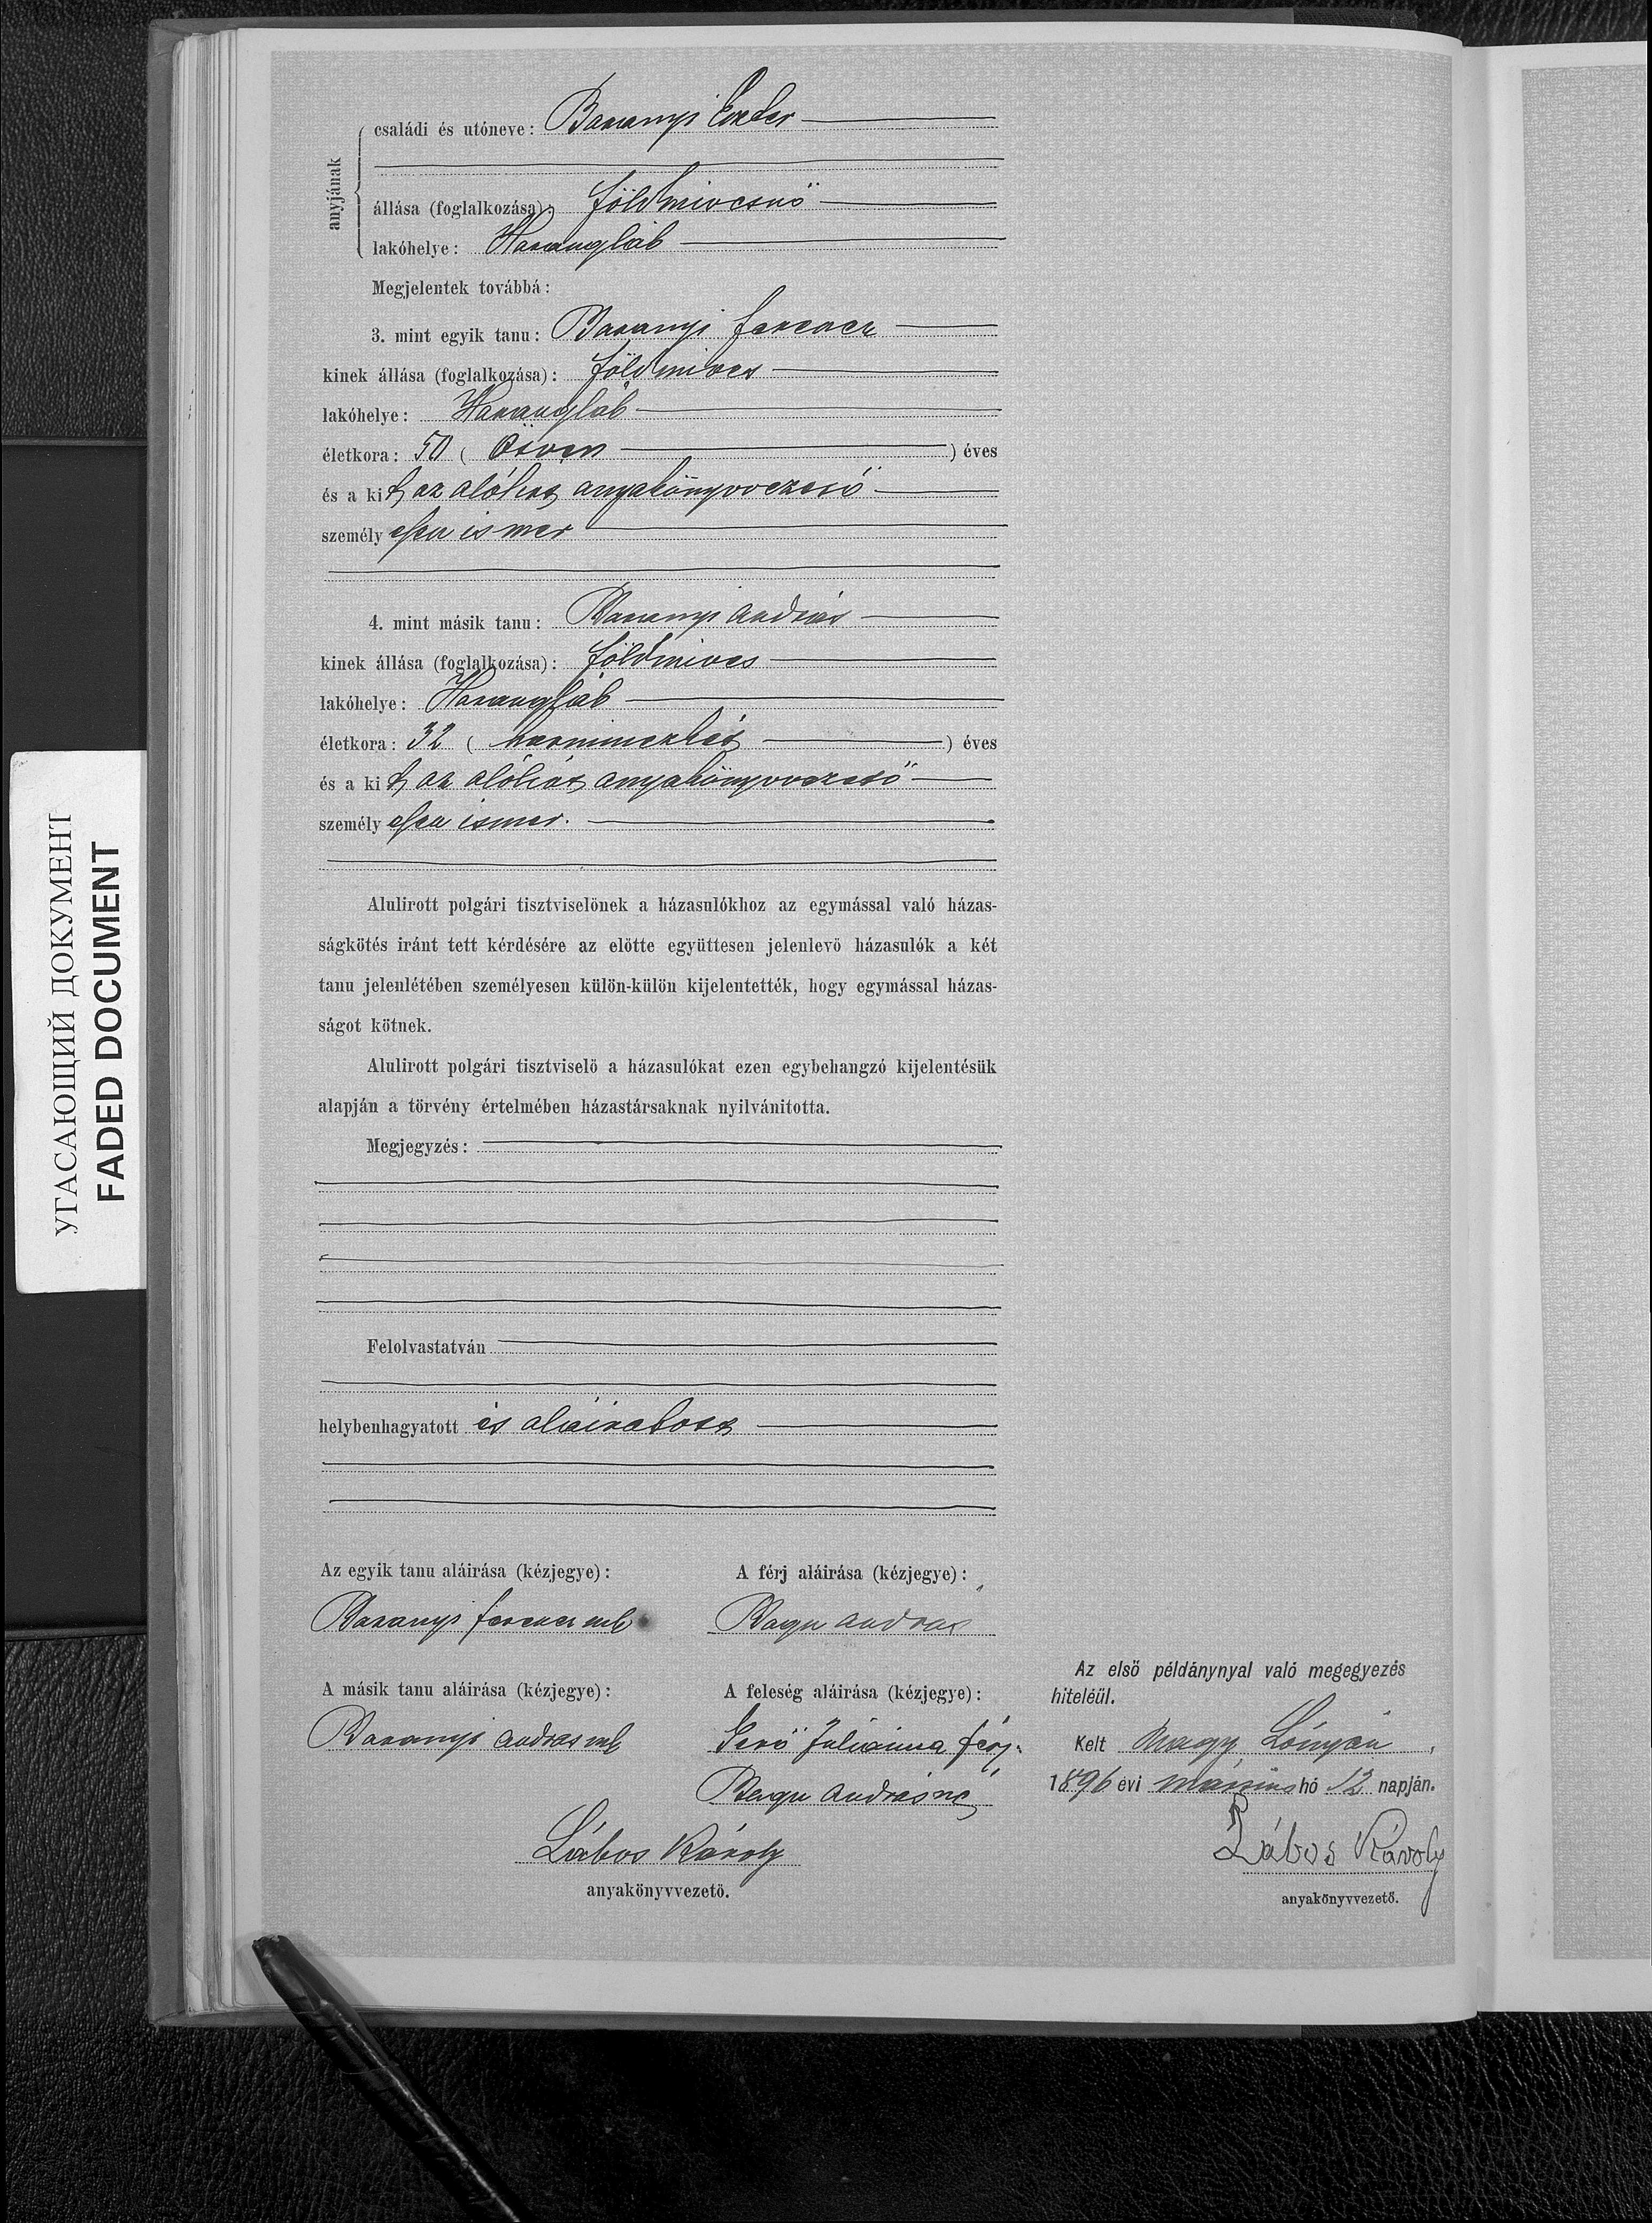 családi és utóneve: Baranyi Eszter
anyjának
állása (foglalkozása): földmivesnő
lakóhelye: Harangláb
Megjelentek továbbá:
3. mint egyik tanu: Baranyi Ferencz
kinek állása (foglalkozása): földmives
lakóhelye: Harangláb
életkora: 50 ( Ötven ) éves
és a kit az alólirt anyakönyvvezető
személyesen ismer
4. mint másik tanu: Baranyi András
kinek állása (foglalkozása): földmives
lakóhelye: Harangláb
életkora: 32 ( harminczkét ) éves
és a kit az alólirt anyakönyvvezető
személyesen ismer.
Alulirott polgári tisztviselönek a házasulókhoz az egymással való házas-
ságkötés iránt tett kérdésére az elötte együttesen jelenlevö házasulók a két
tanu jelenlétében személyesen külön-külön kijelentették, hogy egymással házas-
ságot kötnek.
Alulirott polgári tisztviselö a házasulókat ezen egybehangzó kijelentésük
alapján a törvény értelmében házastársaknak nyilvánitotta.
Megjegyzés:
Felolvastatván
helybenhagyatott és aláiratott
Az egyik tanu aláirása (kézjegye):
Baranyi Ferencz
A férj aláirása (kézjegye):
Bagu András
A másik tanu aláirása (kézjegye):
Baranyi András
A feleség aláirása (kézjegye):
Gerő Juliánna férj.
Bagu Andrásné
Lábos Károly
anyakönyvvezetö.
Az első példánynyal való megegyezés
hiteléül.
Kelt Nagy Lónyán,
1896 évi márczius hó 12 napján.
Lábos Károly
anyakönyvvezető.
УГАСАЮЩИЙ ДОКУМЕНТ
FADED DOCUMENT